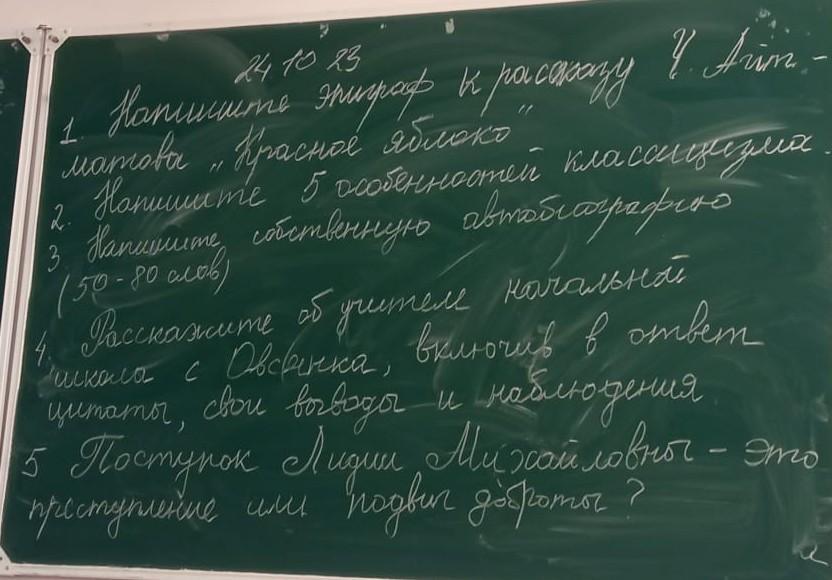 24 10 23
1 Напишите эпиграф к рассказу Ч. Айт-
матова „Красное яблоко"
2. Напишите 5 особенностей классицизма.
3. Напишите собственную автобиографию
(50-80 слов)
4. Расскажите об учителе начальной
школа с Овсянка, включив в ответ
цитаты, свои выводы и наблюдения
5 Поступок Лидии Михайловны - это
преступление или подвиг доброты?